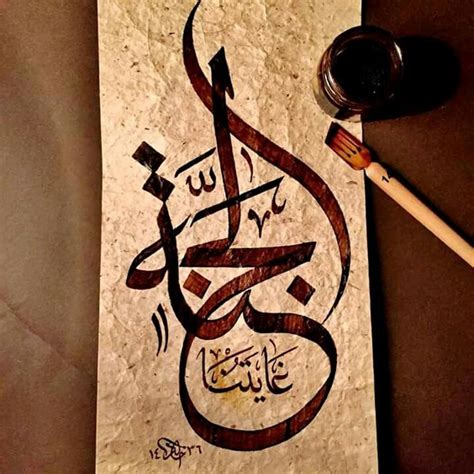 الجنّة
غايتنا
١٤٣٦